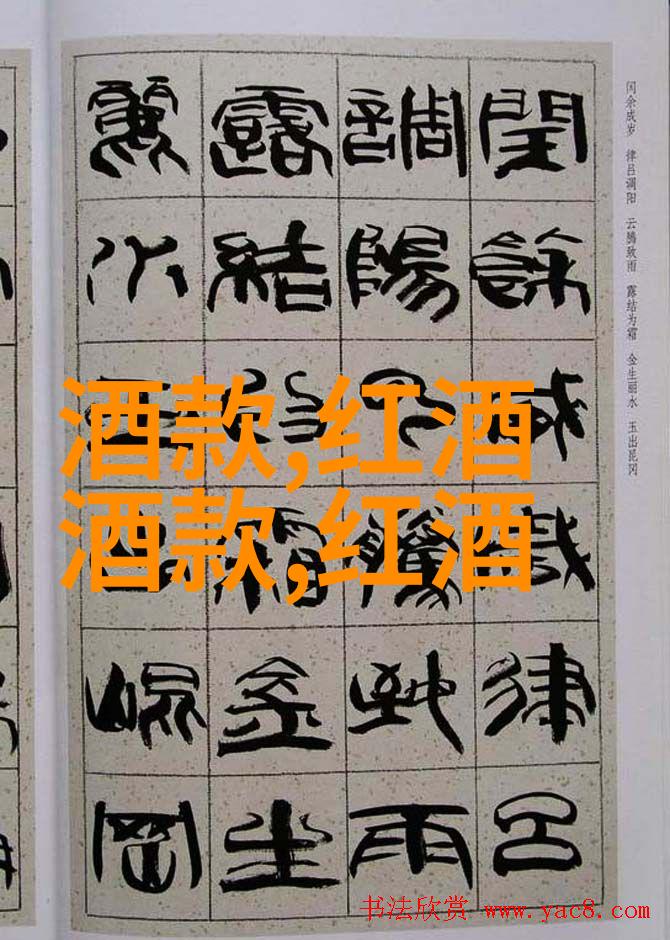 闰余成岁 律吕调阳 云腾致雨 露结为霜 金生丽水 玉出昆冈
閏餘成歲律呂
調陽云騰致雨
露結為霜金生
麗水玉出崐岡
酒款,红酒
酒款,红酒
书法欣赏 www.yac8.com